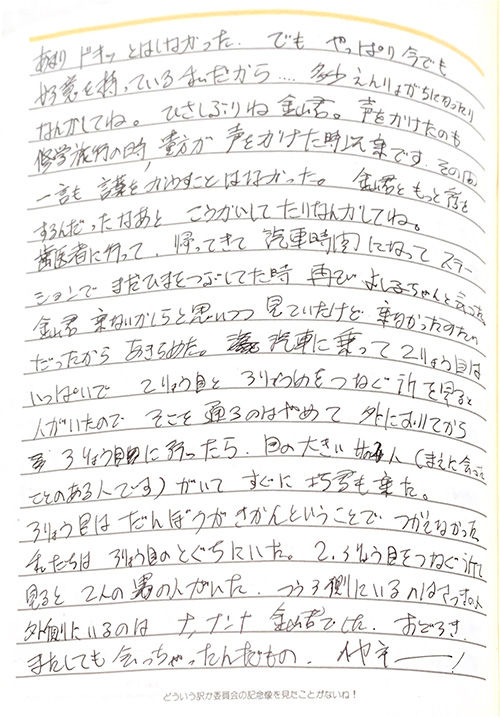 あまりドキッとはしなかった. でも やっぱり今でも
好意を持っている私だから.... 多少えんりょがちになったり
なんかしてね。ひさしぶりね 金山君。声をかけたのも
修学旅行の時, 貴方が 声をかけた時以来です. その間
一言も 言葉をかわすことはなかった。 金山君ともっと話を
するんだったなあと こうかいしてたりなんかしてね。
歯医者に行って. 帰ってきて 汽車時間になって ステー
ションで まだひまをつぶしてた時 再び よしるーちゃんと会った
金山君 乗ないかしらと思いつつ 見ていたけど 乗なかったみたい
だったから あきらめた。 汽車に乗って 2りょう目は
いっぱいで 2りょう目と 3りょうめをつなぐ所を見ると
人がいたので そこを通るのはやめて 外におりてから
3りょう目に行ったら. 目の大きい 人 (まえに会った
ことのある人です) がいて すぐに も乗た。
3りょう目は だんぼうがきかんということで つかえなかった
私たちは 3りょう目のとぐちにいた。2.3りょう目をつなぐ所
見ると 2人の男の人がいた. つうろ側にいるのはさっきの人
外側にいるのは ナ,ナント 金山君でした. おどろき.
またしても会っちゃったんだもの. イヤネー!
どういう訳か委員会の記念像を見たことがないね!